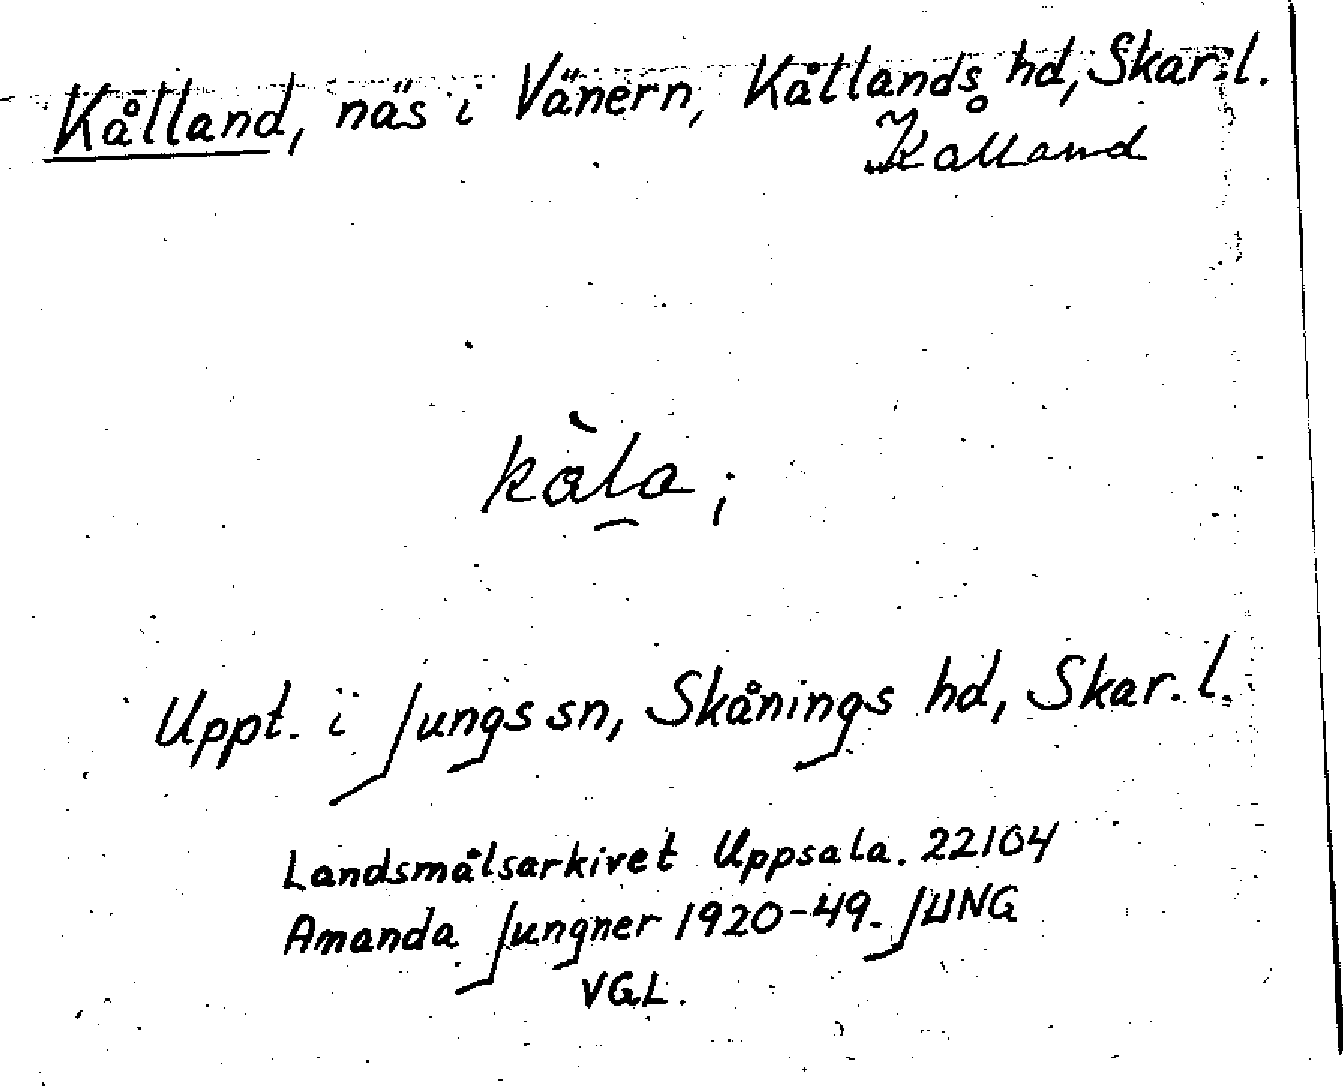 Kålland, näs i Vänern, Kållands hd, Skar. l.
Kålland
kàla;
Uppt. i Jungs sn, Skånings hd, Skar. l.
Landsmålsarkivet Uppsala. 22104
Amanda Jungner 1920-49. JUNG
VGL.